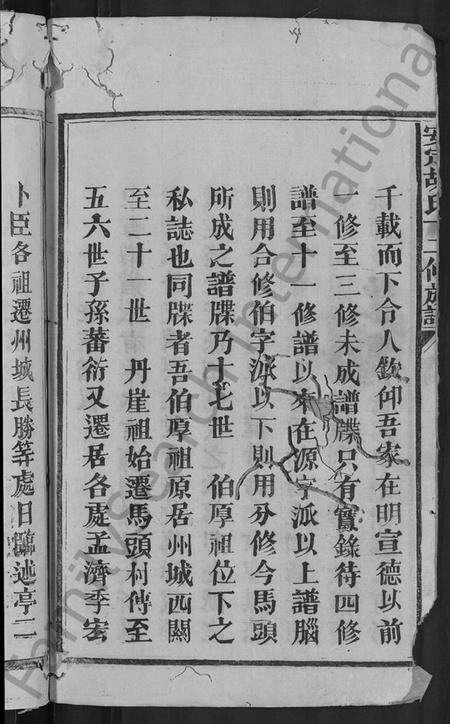 安定胡氏十二修族譜
千載而下合人欽仰吾家在明宣德以前
一修至三修未成譜牒只有實錄待四修
譜至十一修譜以來在源字派以上譜腦
則用合修伯字派以下則用分修今馬頭
所成之譜牒乃十七世 伯厚祖位下之
私誌也同牒者吾伯厚祖原居州城西關
至二十一世 丹崖祖始遷馬頭村傳至
五六世子孫蕃衍又遷居各處孟濟季宏
卜臣各祖遷州城長勝等處日 述亭二
FamilySearch International